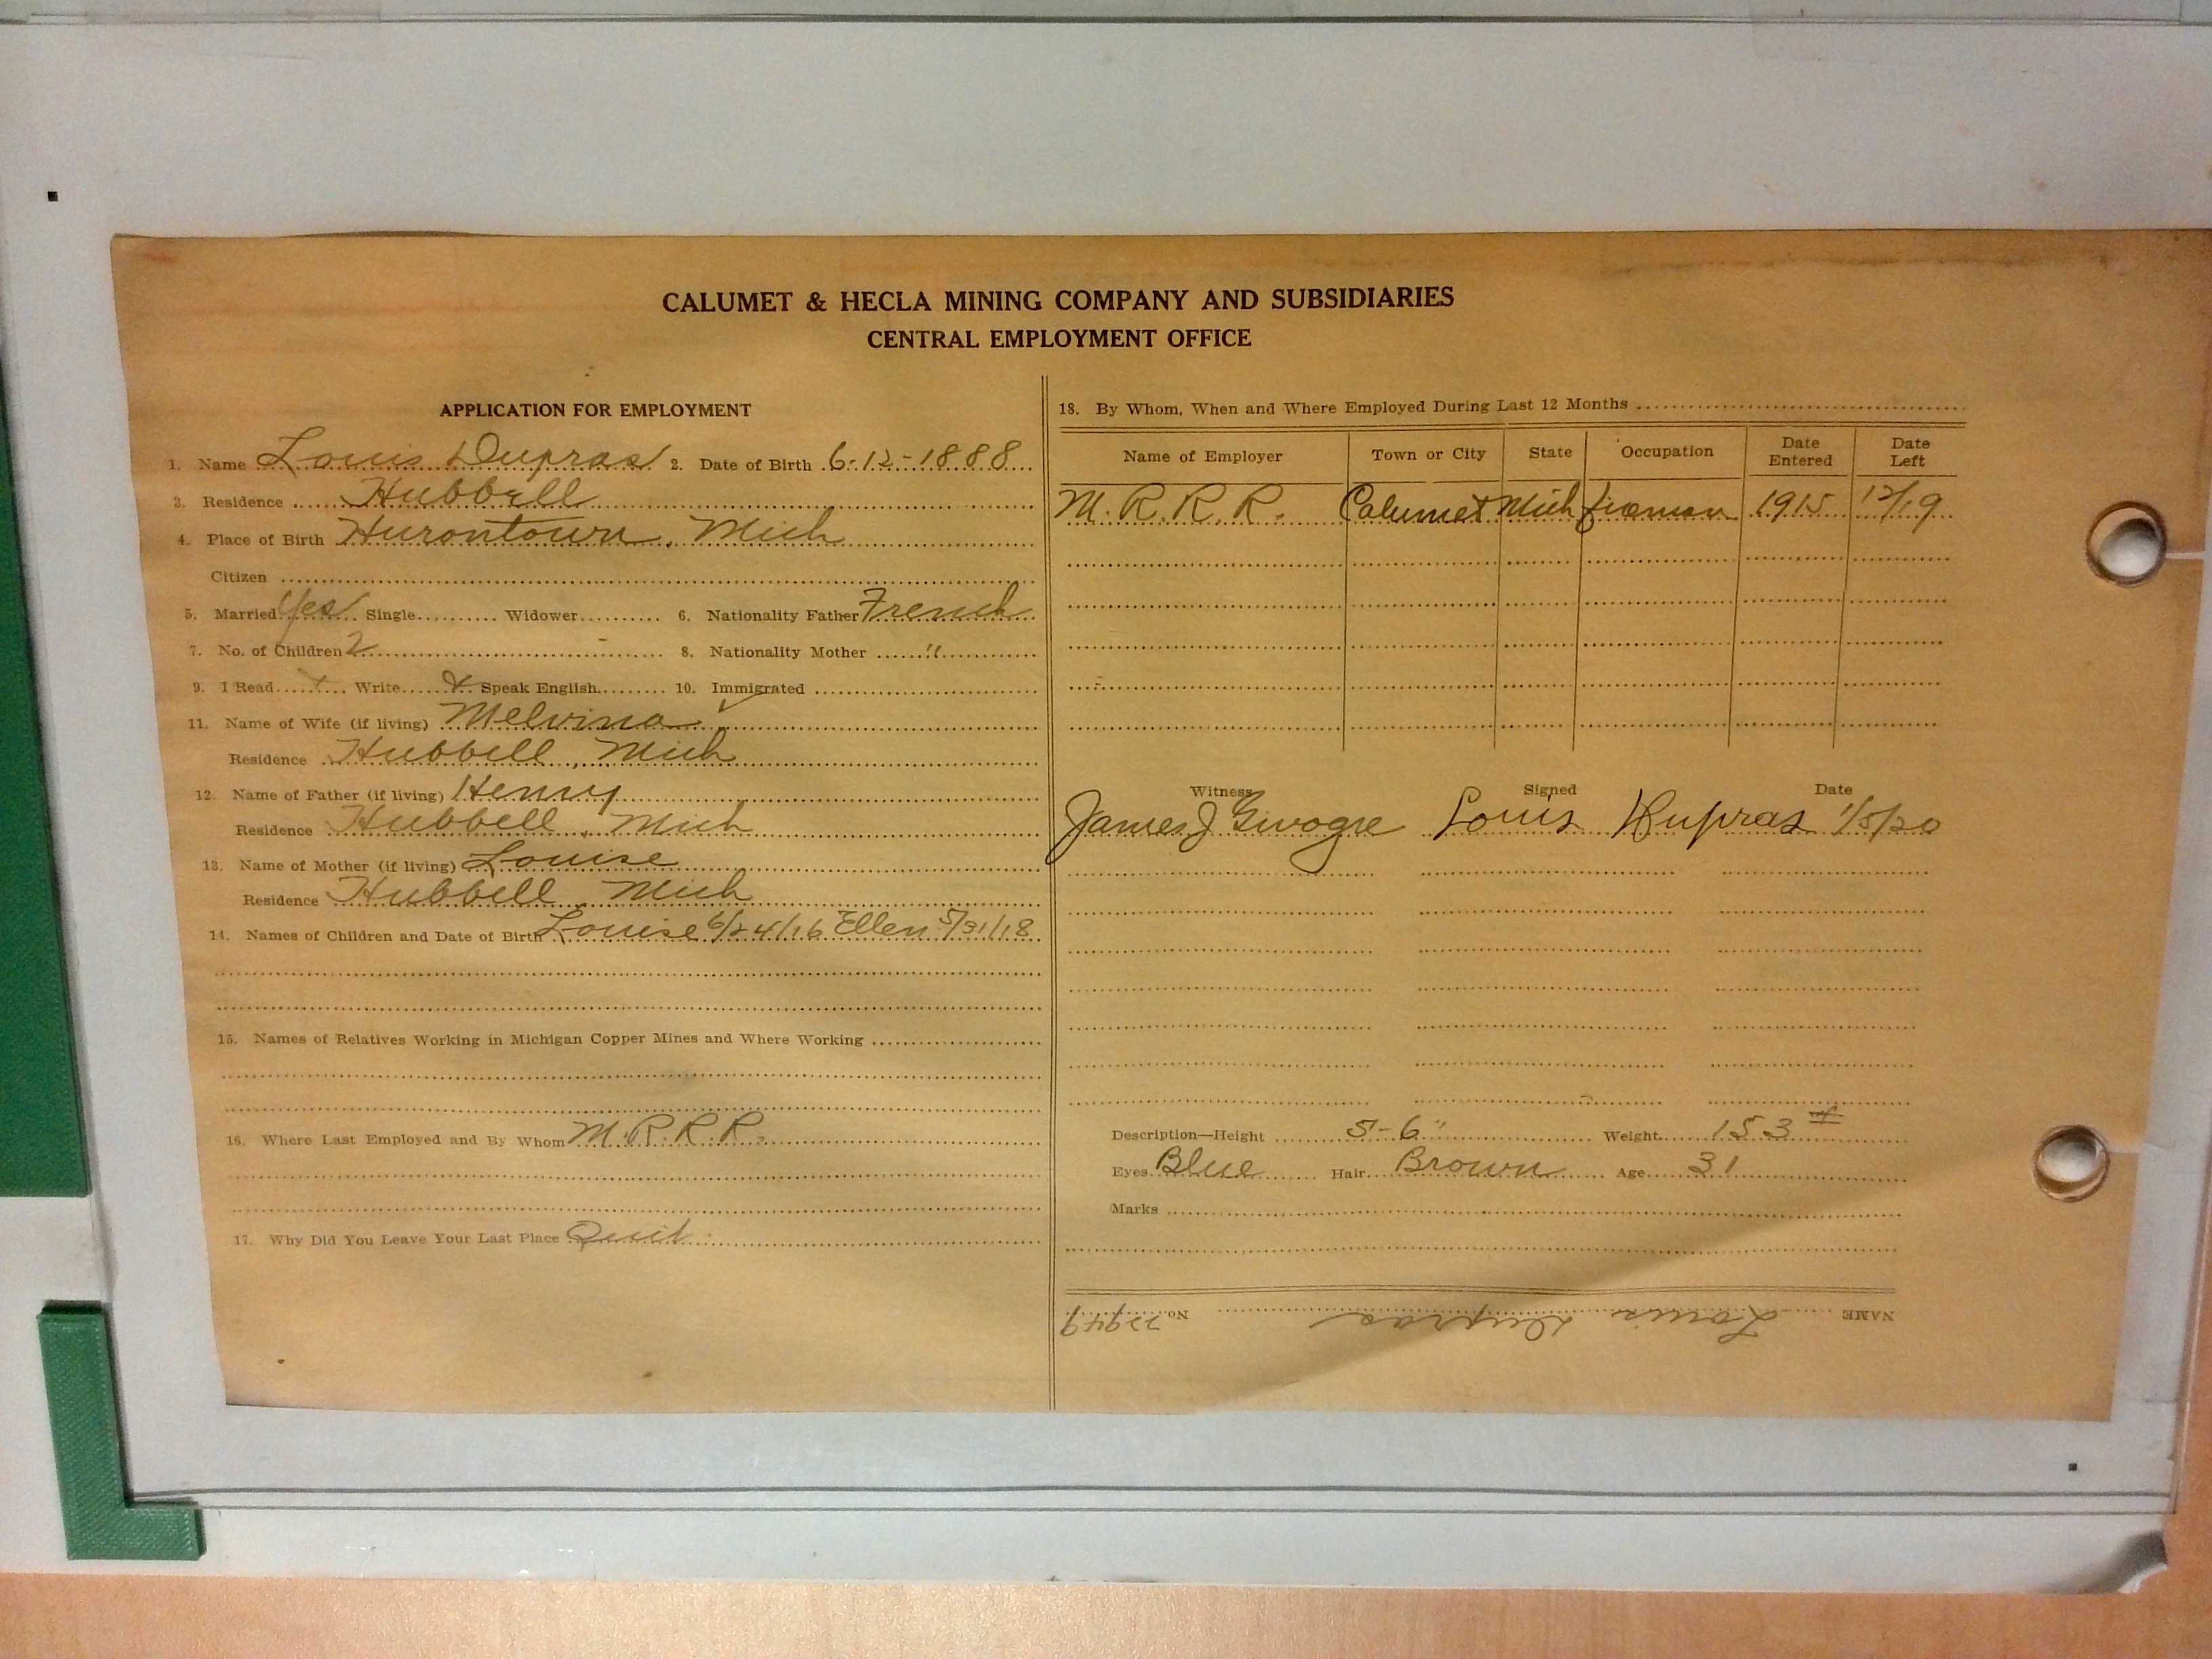 CALUMET & HECLA MINING COMPANY AND SUBSIDIARIES
CENTRAL EMPLOYMENT OFFICE
APPLICATION FOR EMPLOYMENT
1. Name Louis Dupras 2. Date of Birth 6-12-1888
3. Residence Hubbell
4. Place of Birth Hurontown, Mich
Citizen
5. Married Yes Single Widower 6. Nationality Father French
7. No. of Children 2 8. Nationality Mother "
9. I Read x Write x Speak English 10. Immigrated
11. Name of Wife (if living) Melvina
Residence Hubbell, Mich
12. Name of Father (if living) Henry
Residence Hubbell, Mich
13. Name of Mother (if living) Louise
Residence Hubbell, Mich
14. Names of Children and Date of Birth Louise 6/24/16 Ellen 5/31/18
15. Names of Relatives Working in Michigan Copper Mines and Where Working
16. Where Last Employed and By Whom M.R.R.R.
17. Why Did You Leave Your Last Place Quit
18. By Whom, When and Where Employed During Last 12 Months
Name of Employer Town or City State Occupation Date Entered Date Left
M.R.R.R. Calumet Mich fireman 1915 12/19
Witness Signed Date
James J Louis Dupras 1/5/20
Description—Height 5-6" Weight 153 #
Eyes Blue Hair Brown Age 31
Marks
NAME Louis Dupras No. 22949